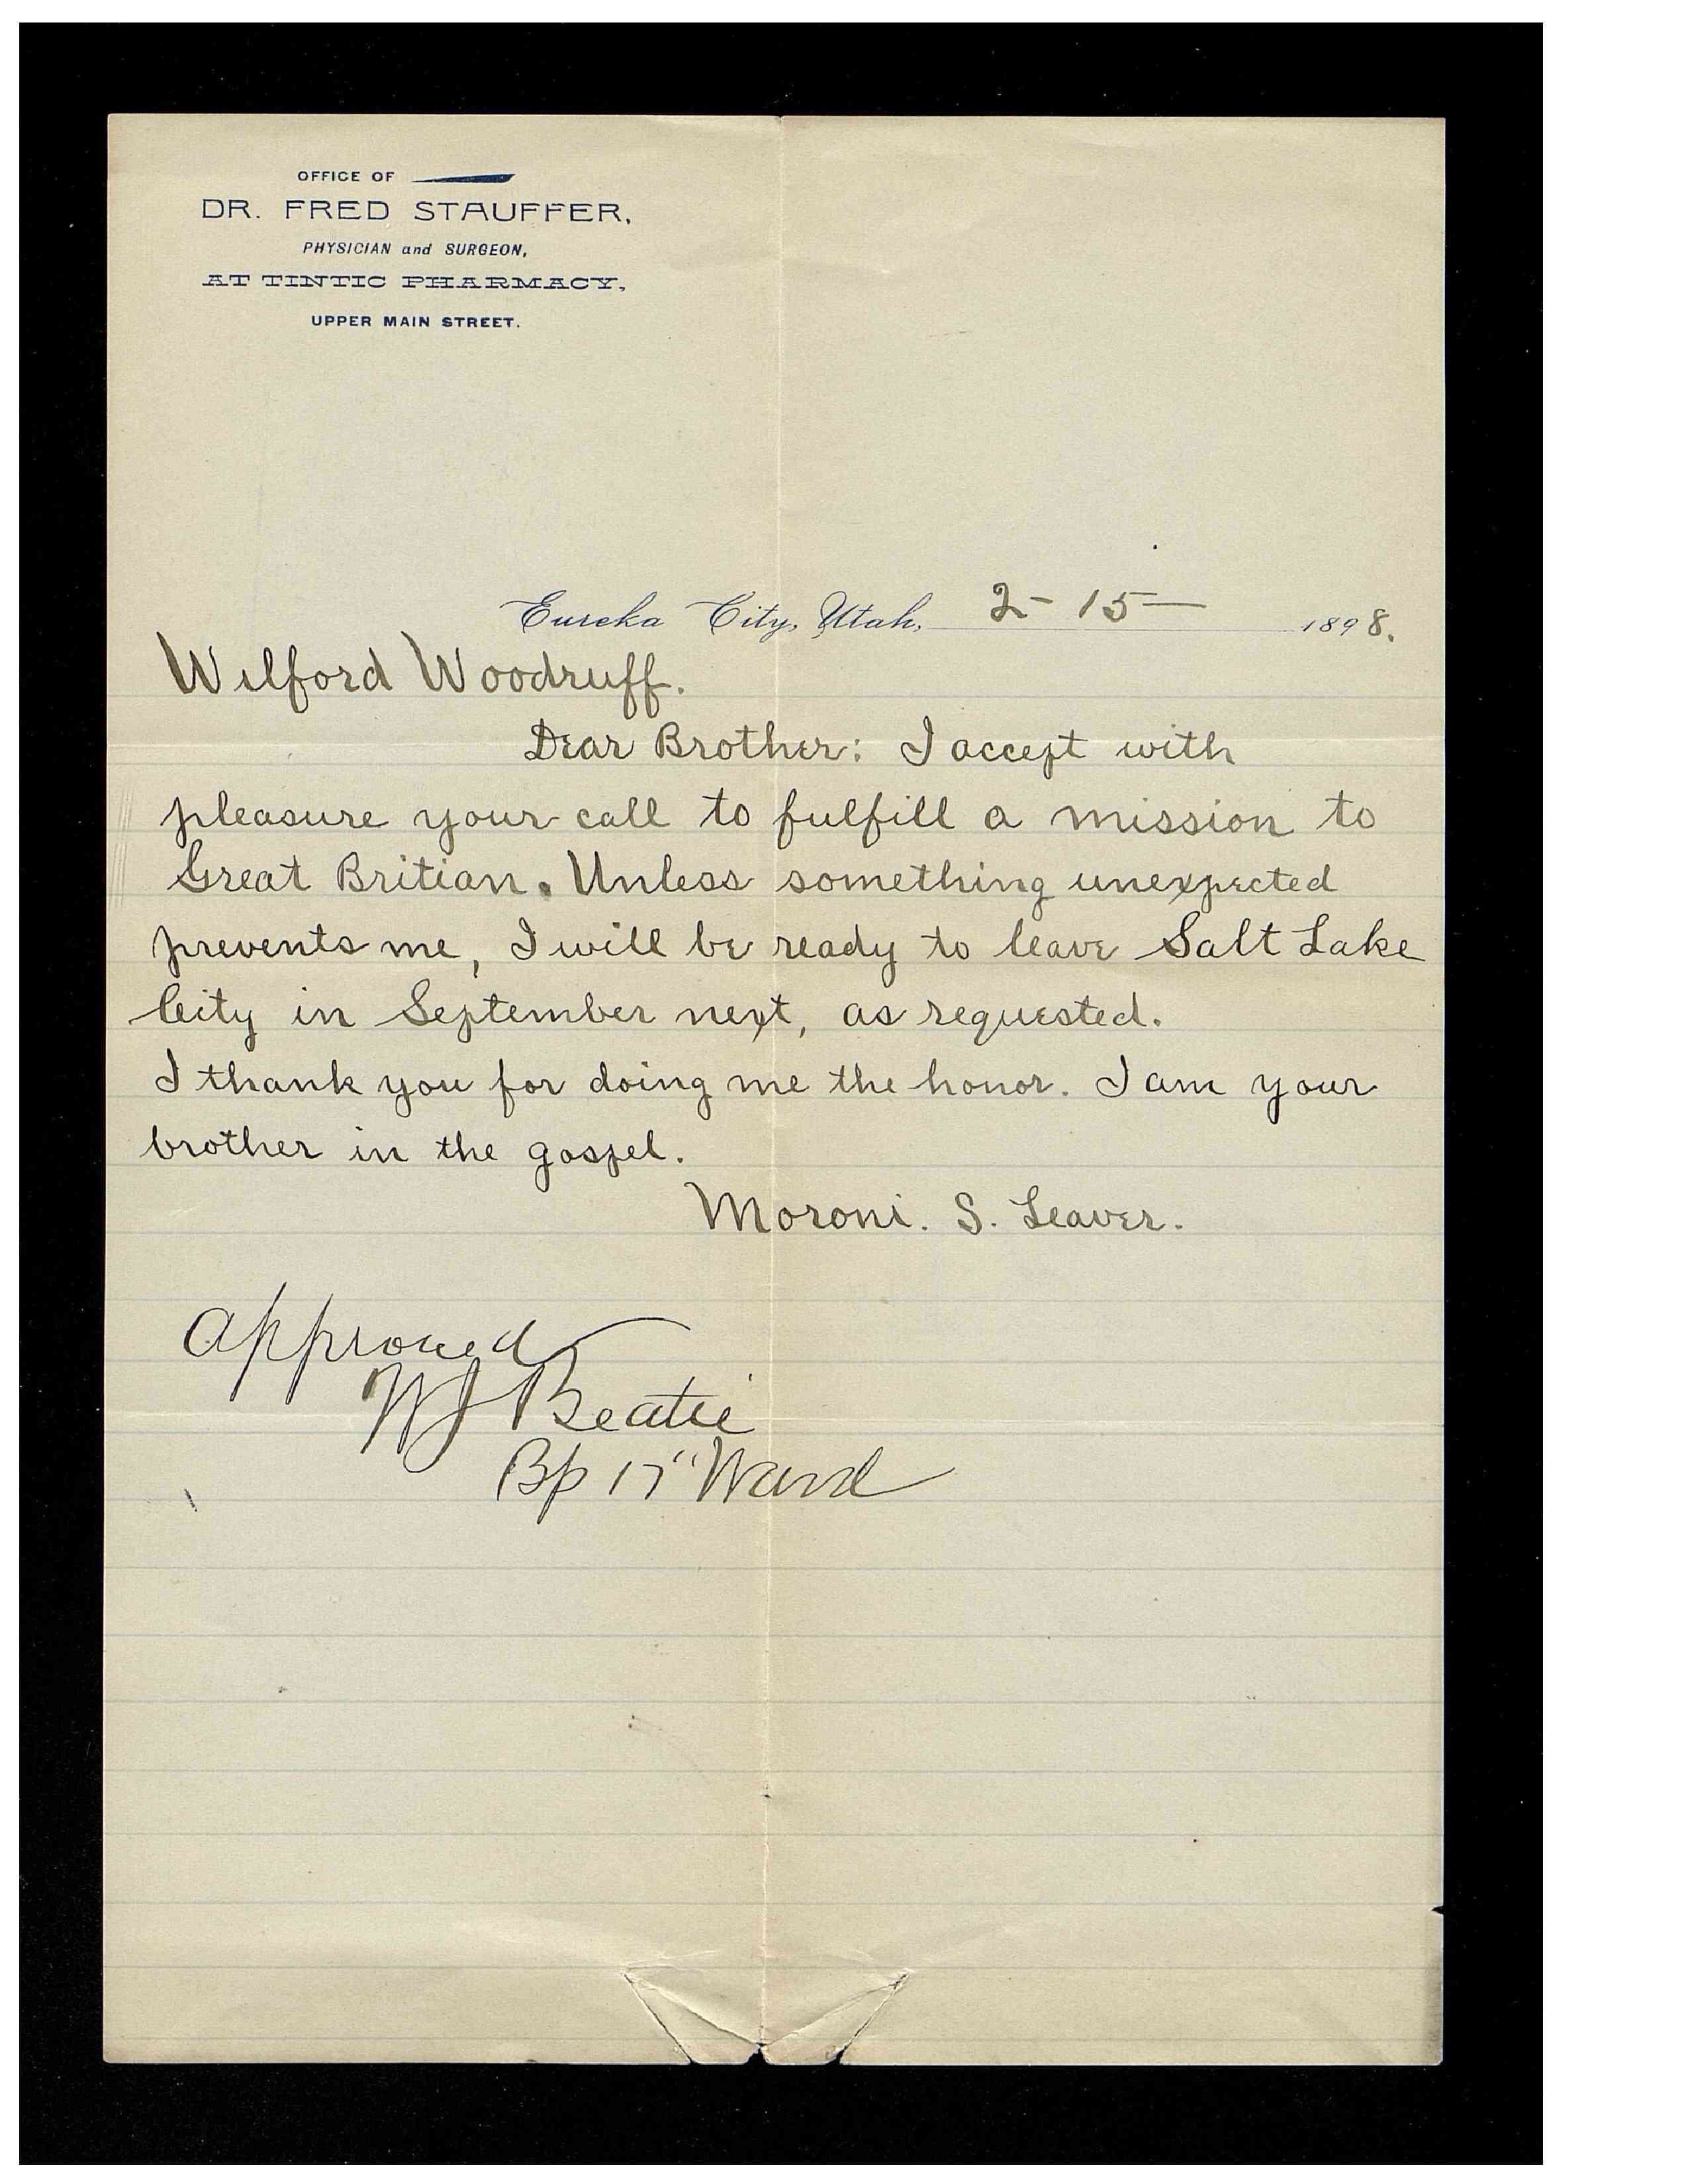 OFFICE OF
DR. FRED STAUFFER,
PHYSICIAN and SURGEON,
AT TINTIC PHARMACY,
UPPER MAIN STREET.
Eureka City, Utah, 2-15- 1898.
Wilford Woodruff.
Dear Brother: I accept with
pleasure your call to fulfill a mission to
Great Britian. Unless something unexpected
prevents me, I will be ready to leave Salt Lake
City in September next, as requested.
I thank you for doing me the honor. I am your
brother in the gospel.
Moroni. S. Leaver.
Approved
WJ Beatie
Bp 17" Ward